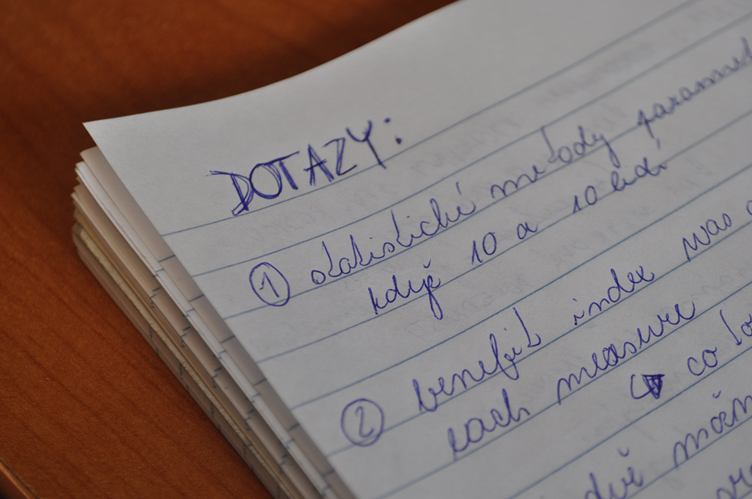 DOTAZY:
① statistické metody paramet
když 10 a 10 lidí
② benefit index was
each measure
co to